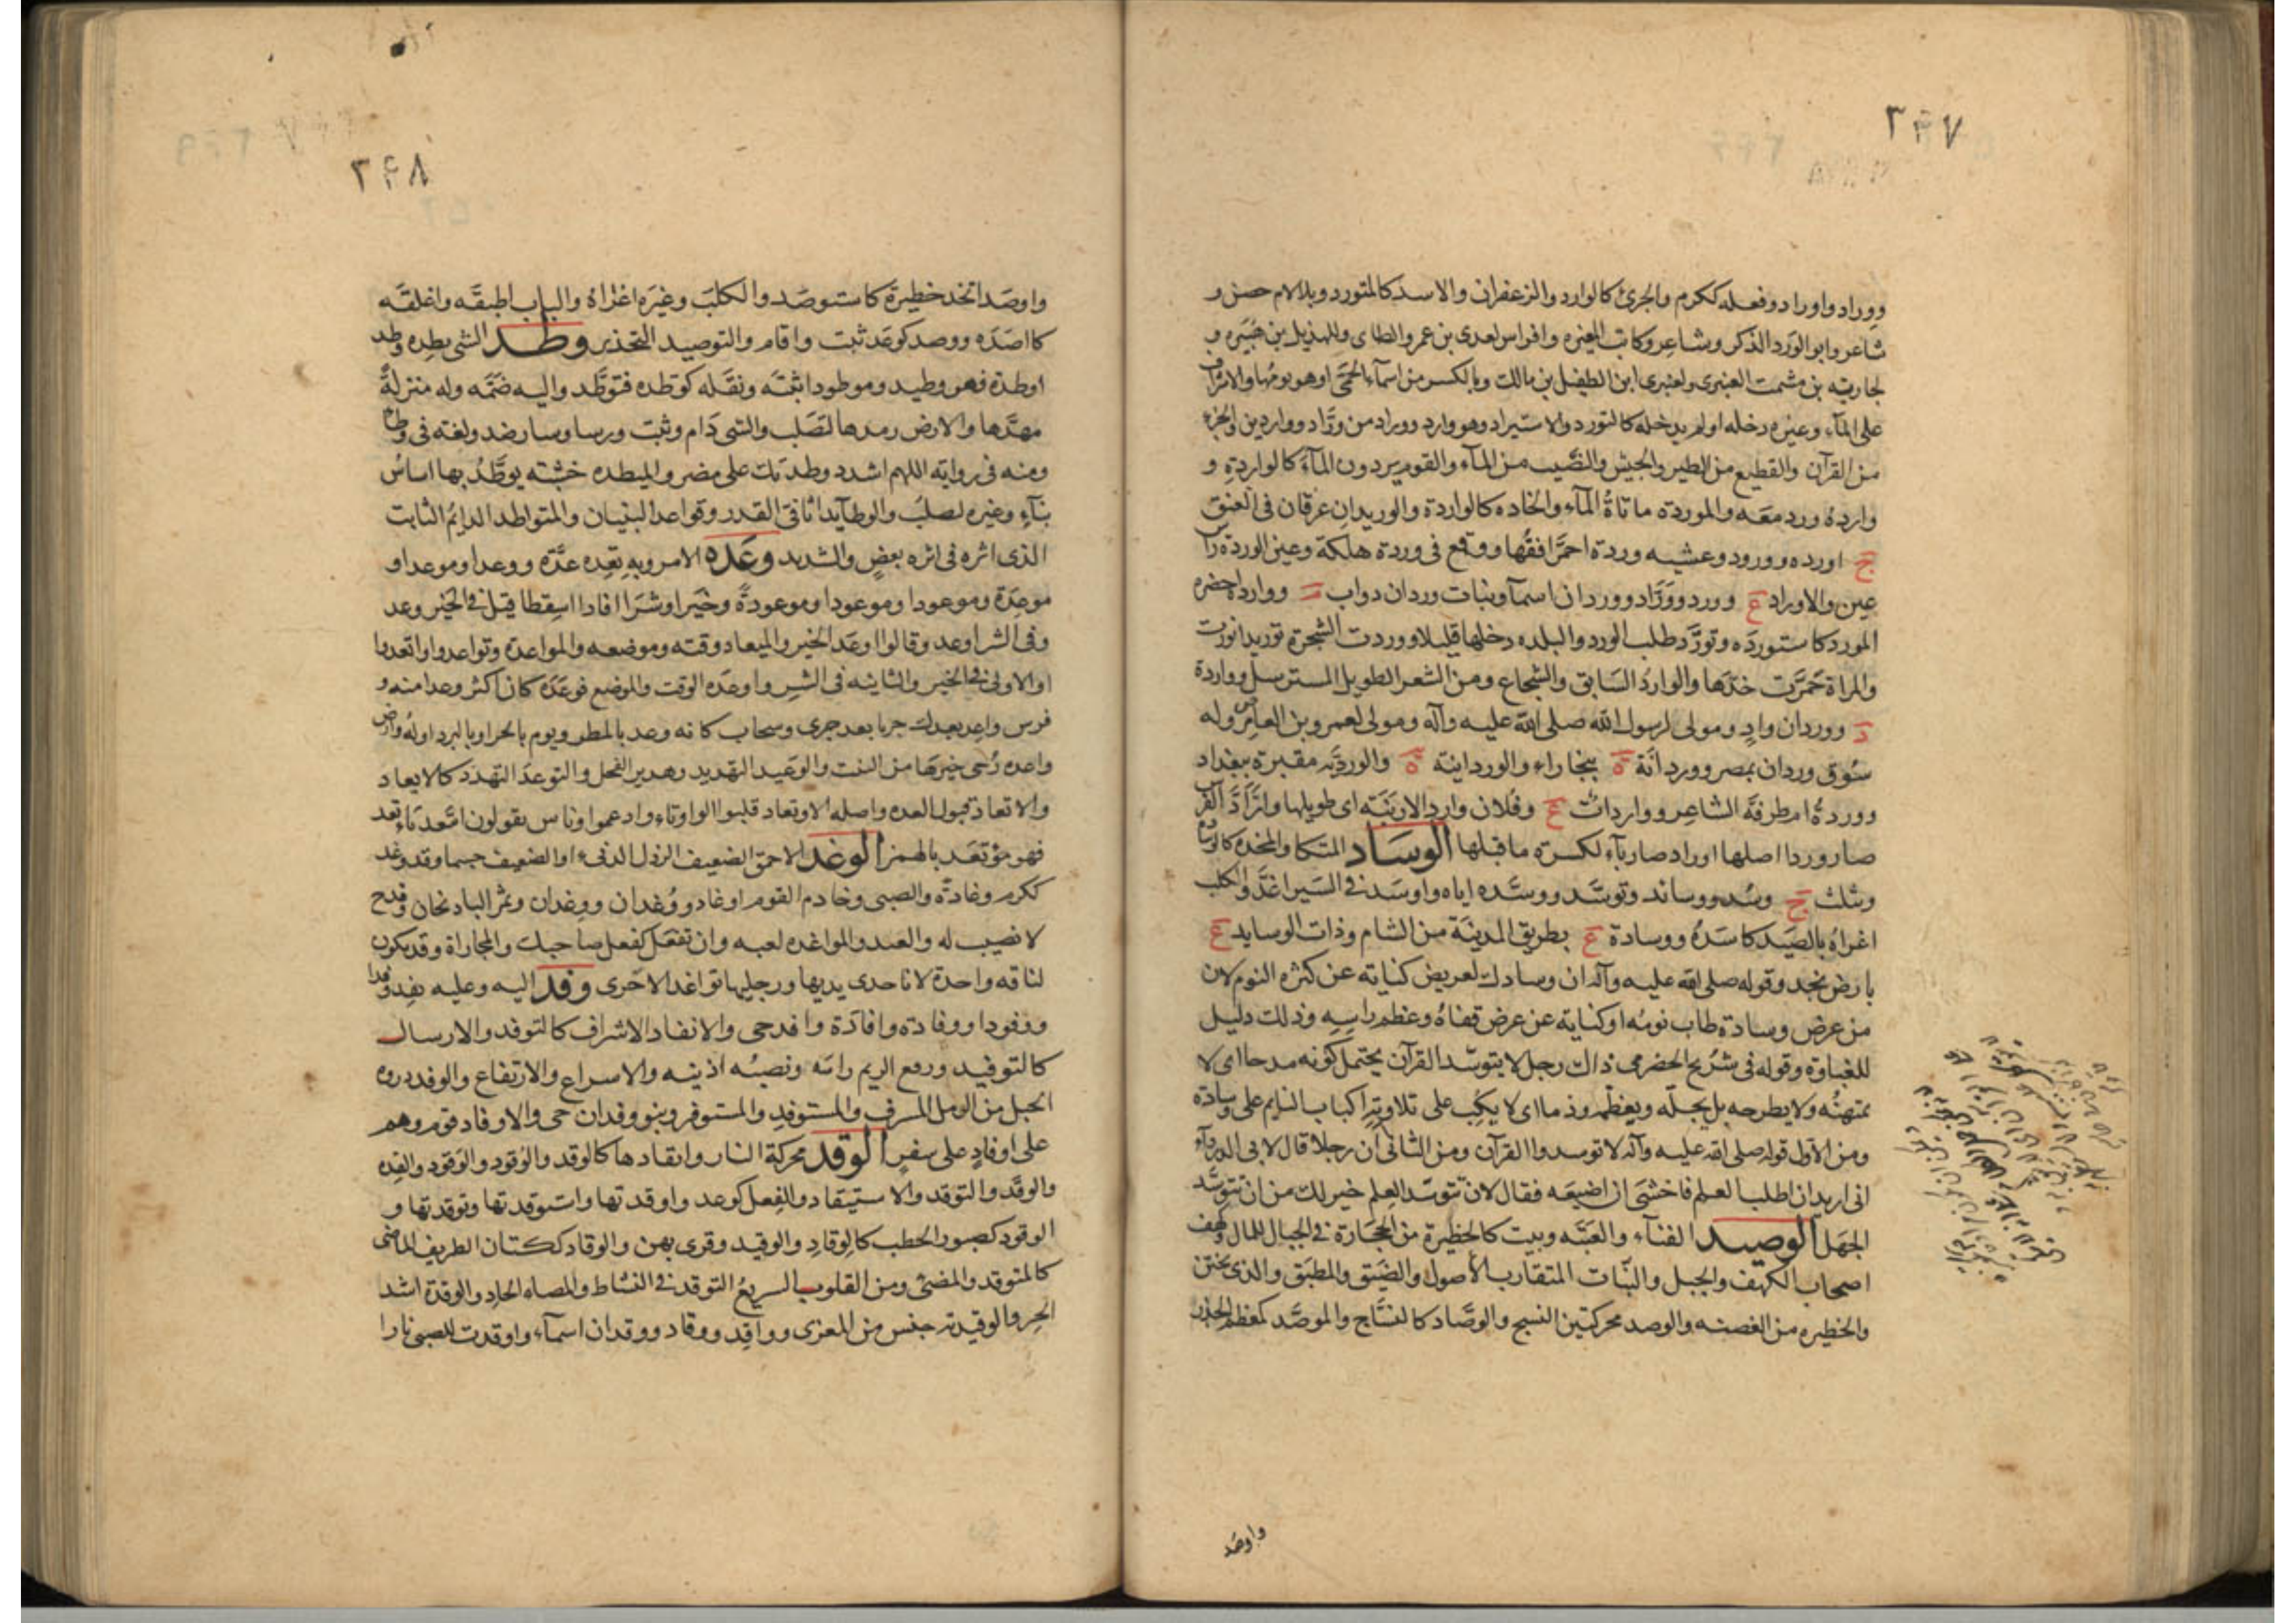 ٢٤٧
ووراد واوراد وفعله ككرم والجرئ كالوارد والزعفران والاسد كالمتورد وبلالام حصن و
شاعر وابو الورد الذكر وشاعر وكاتب المغيره وافراس لعدى بن عمرو الطاى وللهذيل بن هبيره و
لجاريه بن مشمت العنبرى ولعنبرى ابن الطفيل بن مالك وبالكسر من اسمآء الحمى او هو يومها والاشراف
على المآء وغيره دخله او لم يدخله كالتورد والاستيراد وهو وارد ووراد من وراد وواردين والجزء
من القرآن والقطيع من الطير والجيش والنصيب من المآء والقوم يردون المآء كالواردة و
وارده ورد معه والموردة ماتاة المآء والجاده كالواردة والوريدان عرقان فى العنق
ج اورده وورود وعشيه وردة احمر افقها ووقع فى وردة هلكة وعين الوردة راس
عين والاوراد ع وورد ووراد ووردان اسمآء وبنات وردان دواب وواردا حضره
المورد كاستورده وتورد طلب الورد والبلده دخلها قليلا ووردت الشجرة توريدا نورت
والمراة حمرت خدها والوارد السابق والشجاع ومن الشعر الطويل المسترسل وواردة
د ووردان واد ومولى لرسول الله صلى الله عليه وآله ومولى لعمرو بن العاص وله
سوق وردان بمصر ووردانة ة ببخاراء والوردانية ة والورديه مقبرة ببغداد
ووردة ام طرفة الشاعر وواردات ع وفلان وارد الارنبة اى طويلها وايراد الفرس
صار وردا اصلها اوراد صار ياء لكسرة ما قبلها الوساد المتكا والمخده كالوساده
ويثلث ج وسد ووسائد وتوسد ووسده اياه واوسد فى السير اغذ والكلب
اغراه بالصيد كاسده ووسادة ع بطريق المدينة من الشام وذات الوسايد ع
بارض نجد وقوله صلى الله عليه وآله ان وسادك لعريض كناية عن كثرة النوم لان
من عرض وسادة طاب نومه او كناية عن عرض قفاه وعظم راسه وذلك دليل
للغباوة وقوله فى شريح الحضرمى ذاك رجل لا يتوسد القرآن يحتمل كونه مدحا اى لا
يمتهنه ولا يطرحه بل يجله ويعظمه وذما اى لا يكب على تلاوته اكباب النايم على وسادة
ومن الاول قوله صلى الله عليه وآله لا توسدوا القرآن ومن الثانى ان رجلا قال لابى الدردآء
انى اريد ان اطلب العلم فاخشى ان اضيعه فقال لان تتوسد العلم خير لك من ان تتوسد
الجهل الوصيد الفنآء والعتبه وبيت كالحظيرة من الحجارة فى الجبال للمال وكهف
اصحاب الكهف والجبل والنبات المتقارب الاصول والضيق والمطبق والذى يختن
والحظيره من الغصنه والوصد محركتين النسج والوصاد كالنساج والموصد كمعظم الخدر
واوصد
٢٤٨
واوصد اتخذ حظيرة كاستوصد والكلب وغيره اغراه والباب اطبقه واغلقه
كااصده ووصد كوعد ثبت واقام والتوصيد التحذير وطد الشى يطده وطد
اوطدة فهو وطيد وموطود اثبته وثقله كوطده فتوطد واليه ضمه وله منزلة
مهدها والارض ردمها لتصلب والشى دام وثبت ورسا وسار ضد ولغه فى وطئ
ومنه فى رواية اللهم اشدد وطدتك على مضر والميطده خشبة يوطد بها اساس
بنآء وغيره لصلب والوطآيد اثافى القدر وقواعد البنيان والمتواطد الدايم الثابت
الذى اثره فى اثره بعض والشديد وعده الامر وبه يعده عدة ووعدا وموعدا و
موعدة وموعودا وموعودا وموعودة وخيرا وشرا فاذا اسقطا قيل فى الخير وعد
وفى الشر اوعد وقالوا اوعد الخير والميعاد وقته وموضعه والمواعدة وتواعدوا واتعدوا
او الاولى فى الخير والثانيه فى الشر واوعده الوقت والموضع فوعده كان اكثر وعدا منه و
فرس واعد يعدك جريا بعد جرى وسحاب كانه وعد بالمطر ويوم بالحر او بالبرد اوله وارض
واعده رجى خيرها من النبت والوعيد التهديد وهدير الفحل والتوعد التهدد كالايعاد
والاتعاد قبول العده واصله الاوتعاد قلبوا الواو تاء وادغموا وناس يقولون ائتعد ياتعد
فهو مؤتعد بالهمز الوغد الاحمق الضعيف الرذل الدنىء او الضعيف جسما وقد وغد
ككرم وغادة والصبى وخادم القوم اوغاد ووغدان ووغدان وثمر الباذنجان وقدح
لا نصيب له والعبد والمواغده لعبه وان تفعل كفعل صاحبك والمجاراة وقد يكون
لناقه واحدة لان احدى يديها ورجليها تواغد الاخرى وفد اليه وعليه يفد وفدا
ووفودا ووفادة وافادة وافد جى والانفاد الاشراف كالتوفد والارسال
كالتوفيد ورفع الريم راسه ونصبه اذنيه والاسراع والارتفاع والوفد ذروه
الحبل من الرمل المشرف والمستوفد والمستوفز وبنو وفدان حى والاوفاد قوم وهم
على اوفاد على سفر الوقد محركة النار واتقادها كالوقد والوقود والوقود والقده
والوقد والتوقد والاستيقاد والفعل كوعد واوقدتها واستوقدتها وتوقدتها و
الوقود كصبور الحطب كالوقاد والوقيد وقرى بهن والوقاد ككتان الظريف الماضى
كالمتوقد والمضئ ومن القلوب السريع التوقد فى النشاط والمضاء الحاد والوقدة اشد
الحر والوقيدية جنس من المعزى وواقد ووقاد ووقدان اسمآء واوقدت للصبى نارا